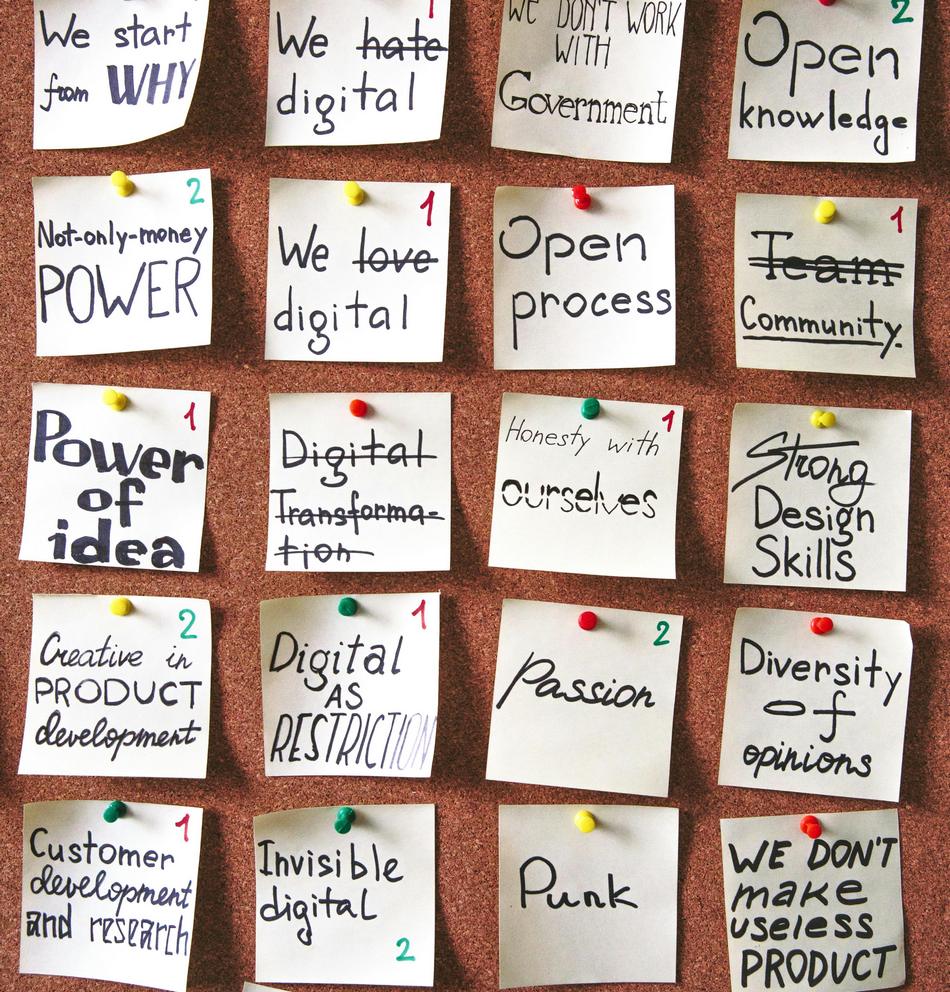 We start
from WHY
1
We hate
digital
WE DON'T WORK
WITH
Government
2
Open
knowledge
2
Not-only-money
POWER
1
We love
digital
Open
process
1
Team
Community.
1
Power
of
idea
Digital
Transforma-
tion
1
Honesty with
ourselves
Strong
Design
Skills
2
Creative in
PRODUCT
development
1
Digital
AS
RESTRICTION
2
Passion
Diversity
of
opinions
1
Customer
development
and research
Invisible
digital
2
Punk
WE DON'T
make
useless
PRODUCT